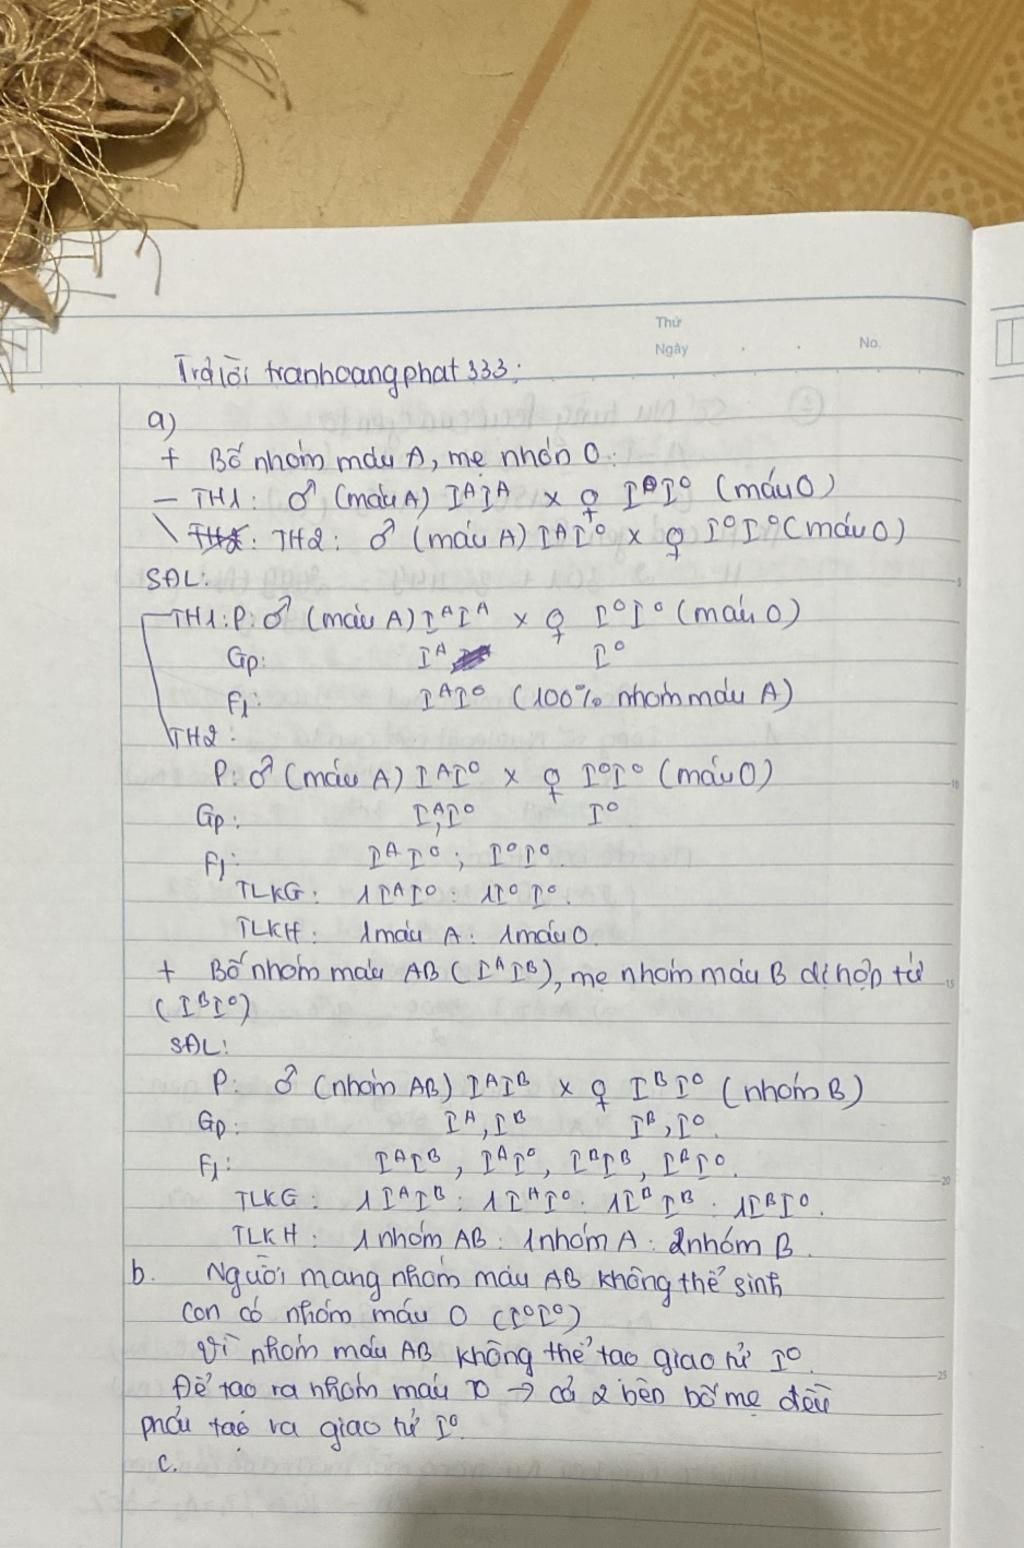 Thứ
Ngày . . No.
Trả lời tranhoangphat333:
a)
+ Bố nhóm máu A, mẹ nhón O:
- TH1: ♂ (máu A) IᴬIᴬ x ♀ IᴼIᴼ (máu O)
TH2: TH2: ♂ (máu A) IᴬIᴼ x ♀ IᴼIᴼ (máu O)
SĐL:
TH1: P: ♂ (máu A) IᴬIᴬ x ♀ IᴼIᴼ (máu O)
Gp: Iᴬ Iᴼ
F₁: IᴬIᴼ (100% nhóm máu A)
TH2:
P: ♂ (máu A) IᴬIᴼ x ♀ IᴼIᴼ (máu O)
Gp: Iᴬ,Iᴼ Iᴼ
F₁: IᴬIᴼ ; IᴼIᴼ.
TLKG: 1IᴬIᴼ : 1IᴼIᴼ.
TLKH: 1máu A : 1máu O.
+ Bố nhóm máu AB (IᴬIᴮ), mẹ nhóm máu B dị hợp tử
(IᴮIᴼ)
SĐL:
P: ♂ (nhóm AB) IᴬIᴮ x ♀ IᴮIᴼ (nhóm B)
Gp: Iᴬ, Iᴮ Iᴮ, Iᴼ.
F₁: IᴬIᴮ, IᴬIᴼ, IᴮIᴮ, IᴮIᴼ.
TLKG: 1IᴬIᴮ : 1IᴬIᴼ : 1IᴮIᴮ : 1IᴮIᴼ.
TLKH: 1nhóm AB : 1nhóm A : 2nhóm B.
b. Người mang nhóm máu AB không thể sinh
con có nhóm máu O (IᴼIᴼ)
Vì nhóm máu AB không thể tạo giao tử Iᴼ.
Để tạo ra nhóm máu O → cả 2 bên bố mẹ đều
phải tạo ra giao tử Iᴼ.
c.